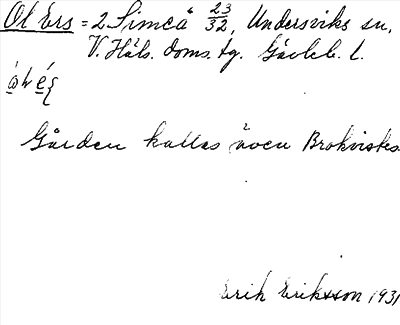 Ol Ers = 2 Simeå 23/32, Undersviks sn,
V. Häls. doms. tg. Gävleb. l.
Gården kallas även Brokvistes
Erik Eriksson 1931